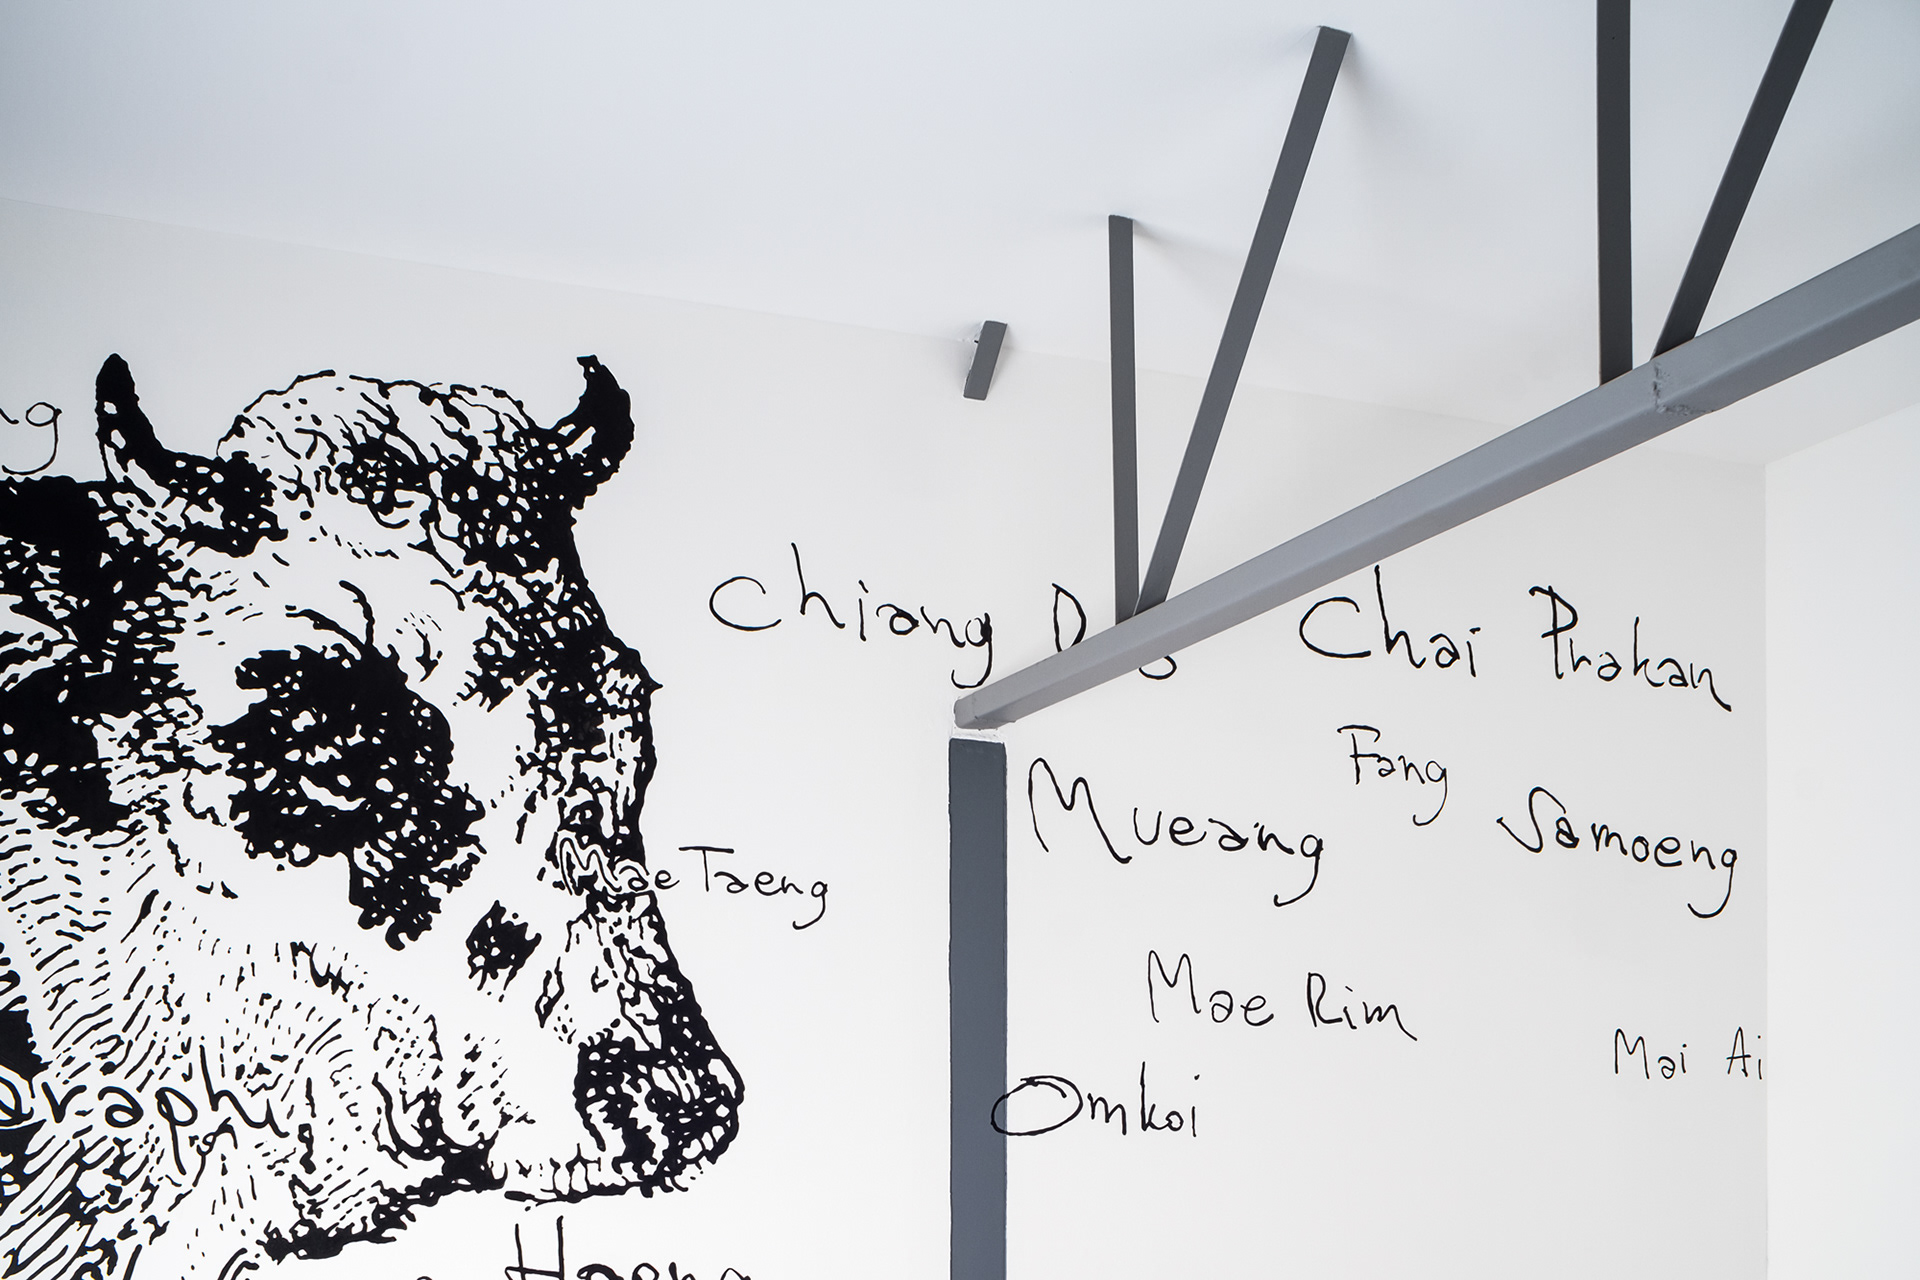 Chiang
Chai Prakan
Fang
Mueang
Samoeng
Mae Taeng
Mae Rim
Mai Ai
Omkoi